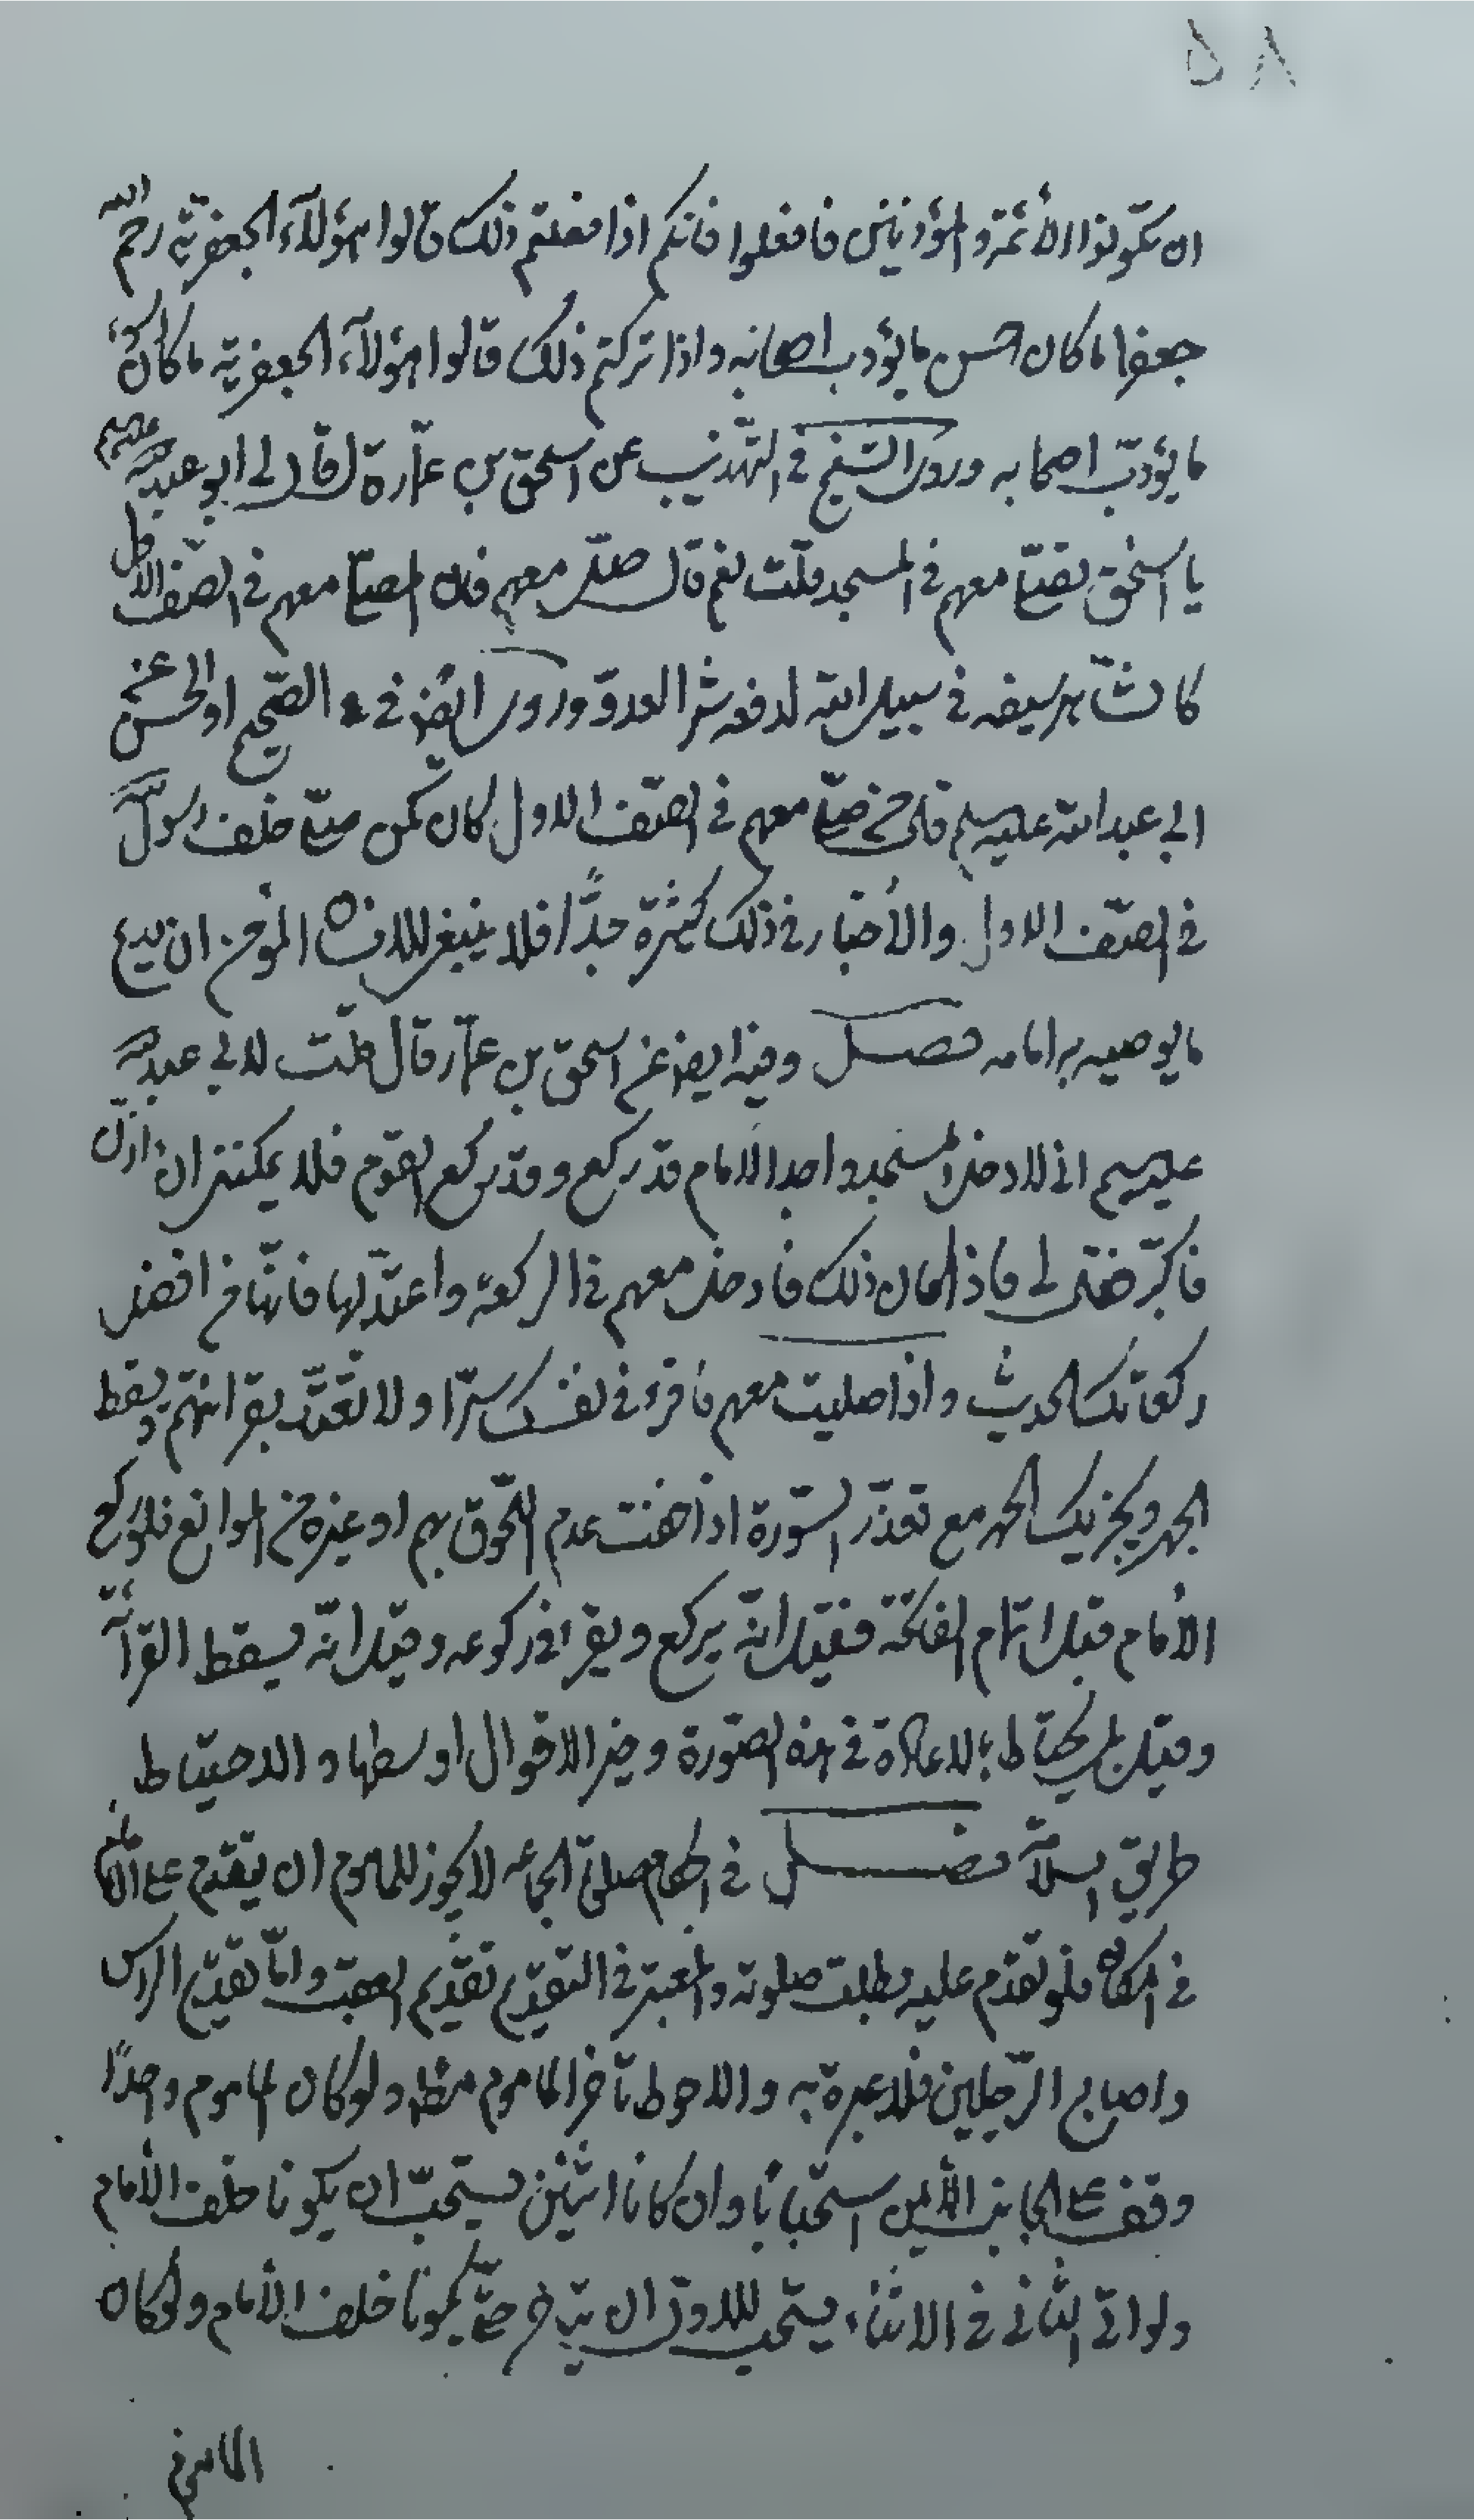 ٥٨
ان تكونوا الأئمة والمؤذنين فافعلوا فانكم اذا فعلتم ذلك قالوا هؤلآء الجعفرية رحم الله
جعفرا ما كان احسن ما يؤدب اصحابه واذا تركتم ذلك قالوا هؤلآء الجعفرية ما كان اسوء
ما يؤدّب اصحابه وروى الشيخ في التهذيب عن اسحق بن عمّار قال قال لي ابو عبد الله عليه السلم
يا اسحق تصلّي معهم في المسجد قلت نعم قال صلّ معهم فان المصلّي معهم في الصّف الاول
كالشّاهر سيفه في سبيل الله لدفعه شر العدوّ وروى ايضا في الصّحيح او الحسن عن
ابي عبد الله عليه السلم قال من صلّى معهم في الصّف الاول كان كمن صلّى خلف رسول الله
في الصّف الاول والأخبار في ذلك كثيرة جدًّا فلا ينبغي للانسان المؤمن ان يدع
ما يوصيه به امامه فصل وفيه ايضا عن اسحق بن عمّار قال قلت لابي عبد الله
عليه السلم اني لادخل المسجد واجد الامام قد ركع وقد ركع القوم فلا يمكنني ان اؤذّن
فاكبّر فقال لي فاذا كان ذلك فادخل معهم في الركعة واعتدّ بها فانّها من افضل
ركعاتك الحديث واذا صليت معهم فاقرء في نفسك سرّا ولا تعتدّ بقرائتهم ويسقط
الجهر ويجزيك الحمد مع تعذّر السّورة اذا خفت عدم اللّحوق بهم او غيره من الموانع فلو ركع
الأمام قبل اتمام الفاتحة فقيل انّه يركع ويقرا في ركوعه وقيل انّه يسقط القرآئة
وقيل بل يحتاط بالاعادة في هذه الصّورة وخير الاقوال اوسطها والاحتياط
طريق السلامة فصل في احكام صلوة الجماعه لا يجوز للماموم ان يتقدم على الامام
في المكان فلو تقدّم عليه بطلت صلوته والمعتبر في التقديم تقديم العقب وامّا تقديم الراس
واصابع الرّجلين فلا عبرة به والاحوط تاخر الماموم مطلقا ولو كان الماموم واحدًا
وقف على الجانب الأيمن استحبابًا وان كانا اثنين يستحبّ ان يكونا خلف الأمام
ولو اتى الثاني في الاثناء يستحب للاول ان يتاخر حتّى يكونا خلف الأمام ولو كان